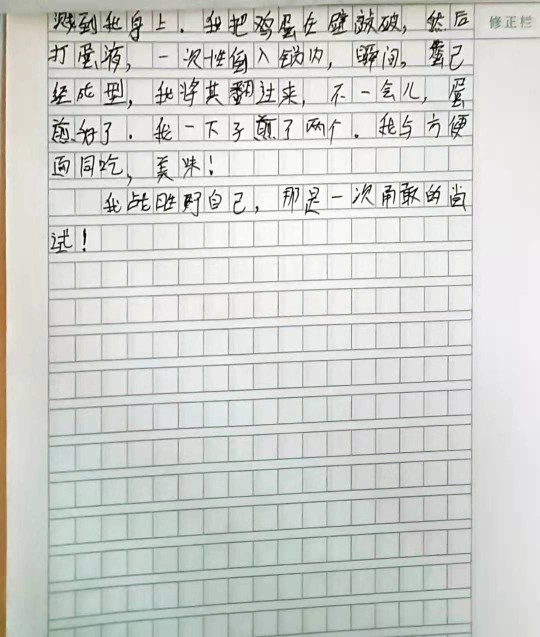 溅到我身上．我把鸡蛋在壁敲破，然后
修正栏
打蛋液，一次性倒入锅内，瞬间，蛋已
经成型，我将其翻过来，不一会儿，蛋
煎好了．我一下子煎了两个．我与方便
面同吃，美味！
我战胜自己，那是一次勇敢的尝
试！